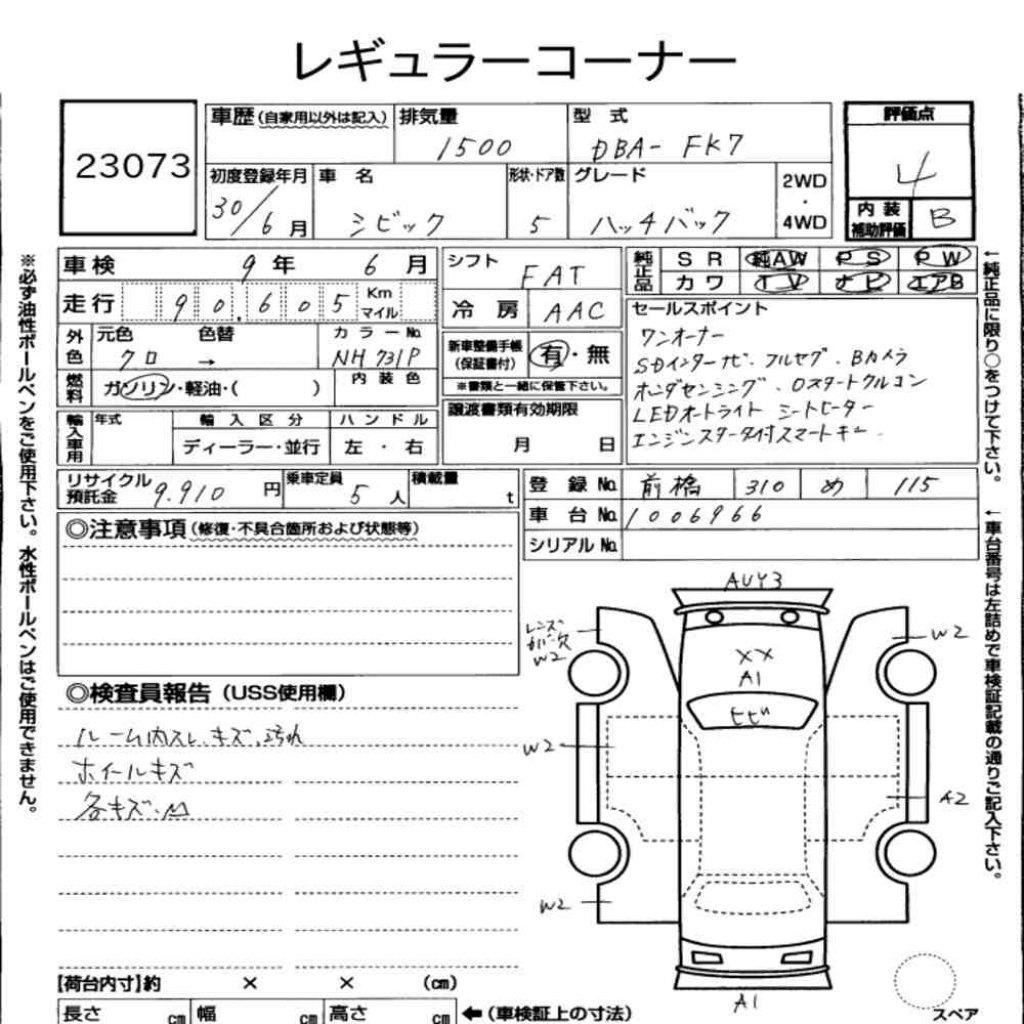 レギュラーコーナー
23073
車歴(自家用以外は記入)
排気量
1500
型 式
DBA- FK7
評価点
4
初度登録年月
30/6月
車 名
シビック
形状・ドア数
5
グレード
ハッチバック
2WD
・
4WD
内装
補助評価
B
車検 9年 6月
シフト
FAT
純正品
SR 純AW PS PW
カワ TV ナビ エアB
走行 90,605 Km
マイル
冷 房 AAC
セールスポイント
ワンオーナー
SDインターナビ、フルセグ、Bカメラ
ホンダセンシング、Dスタートクルコン
LEDオートライト シートヒーター
エンジンスタータ付スマートキー
外色
元色 色替 カラーNo.
クロ → NH731P
新車整備手帳
(保証書付)
有・無
※書類と一緒に保管下さい。
燃料
ガソリン・軽油・( )
内装色
輸入車用
年式
輸入区分
ハンドル
ディーラー・並行
左・右
譲渡書類有効期限
月 日
リサイクル
預託金 9,910円
乗車定員
5人
積載量
t
登録No. 前橋 310 め 115
車台No. 1006966
シリアルNo.
◎注意事項(修復・不具合箇所および状態等)
◎検査員報告(USS使用欄)
ルーム内スレ、キズ、汚れ
ホイールキズ
各キズ・凹
AUY3
レンズ
W2
W2
XX
A1
ヒビ
W2
A2
W2
A1
スペア
【荷台内寸】約 × × (cm)
長さ cm 幅 cm 高さ cm ←(車検証上の寸法)
※必ず油性ボールペンをご使用下さい。水性ボールペンはご使用できません。
←純正品に限り○をつけて下さい。
←車台番号は左詰めで車検証記載の通りご記入下さい。